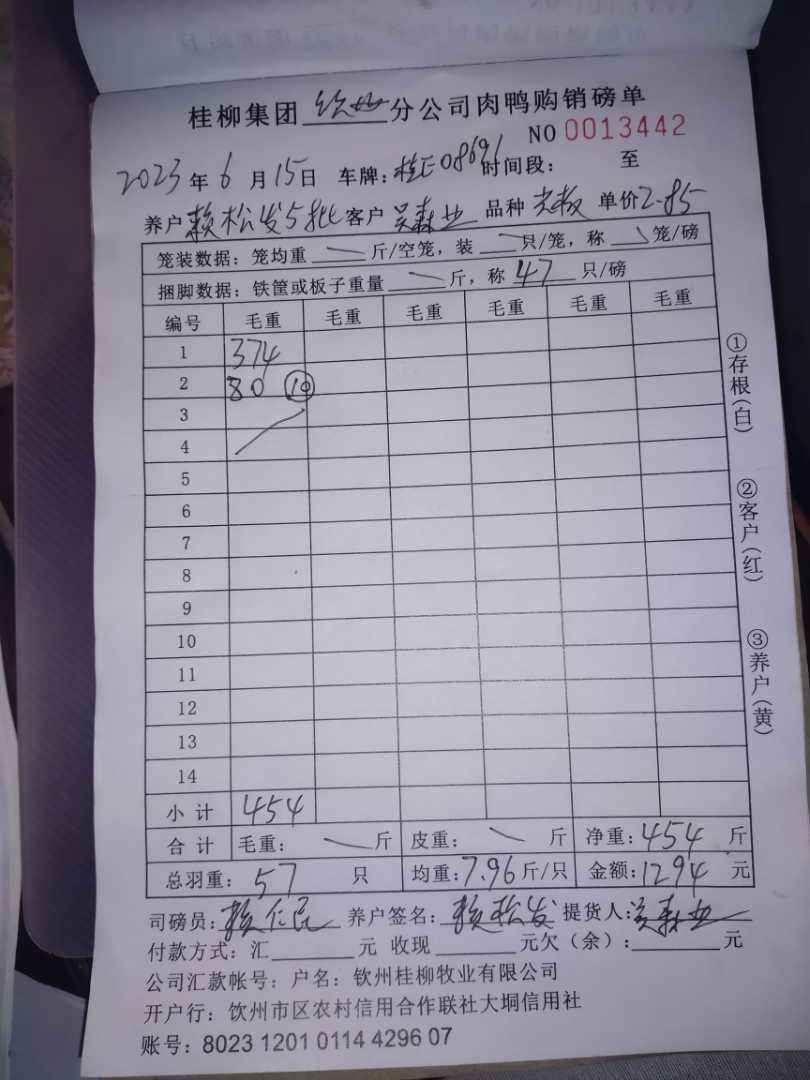 桂柳集团 钦州 分公司肉鸭购销磅单
NO 0013442
2023年6月15日 车牌:桂E08691 时间段: 至
养户 赖松发5批 客户 吴森业 品种 光板 单价2.85
笼装数据:笼均重 斤/空笼,装 只/笼,称 笼/磅
捆脚数据:铁筐或板子重量 斤,称 47 只/磅
编号 毛重 毛重 毛重 毛重 毛重 毛重
1 374
2 80 10
3
4
5
6
7
8
9
10
11
12
13
14
小计 454
合计 毛重: 斤 皮重: 斤 净重:454 斤
总羽重:57 只 均重:7.96斤/只 金额:1294 元
司磅员:赖仁民 养户签名:赖松发 提货人:吴森业
付款方式:汇 元 收现 元欠(余): 元
公司汇款帐号:户名:钦州桂柳牧业有限公司
开户行:饮州市区农村信用合作联社大垌信用社
账号:8023 1201 0114 4296 07
①存根(白)
②客户(红)
③养户(黄)